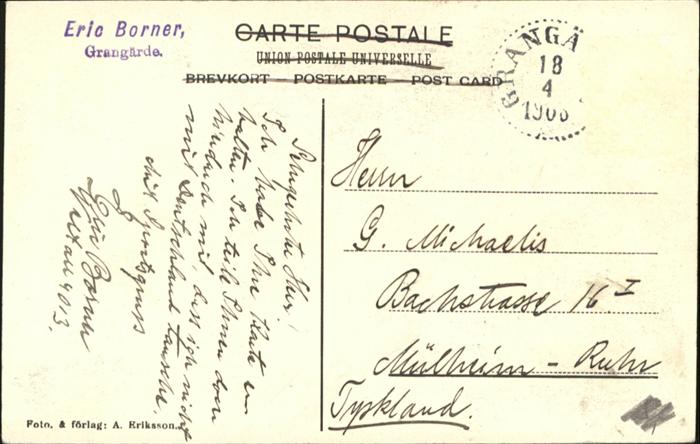 Eric Borner,
Grangärde.
CARTE POSTALE
UNION POSTALE UNIVERSELLE
BREVKORT - POSTKARTE - POST CARD
GRANGÄ
18
4
1906
Sehr geehrter Herr!
Ich habe Ihre Karte er-
halten. Ich teile Ihnen
hierdurch mit, dass ich nicht
mit Deutschland tausche.
Mit Grussgruss
Eric Borner
4013.
Herrn
G. Michaelis
Bachstrasse 16 I
Mülheim - Ruhr
Tyskland.
Foto. & förlag: A. Eriksson.